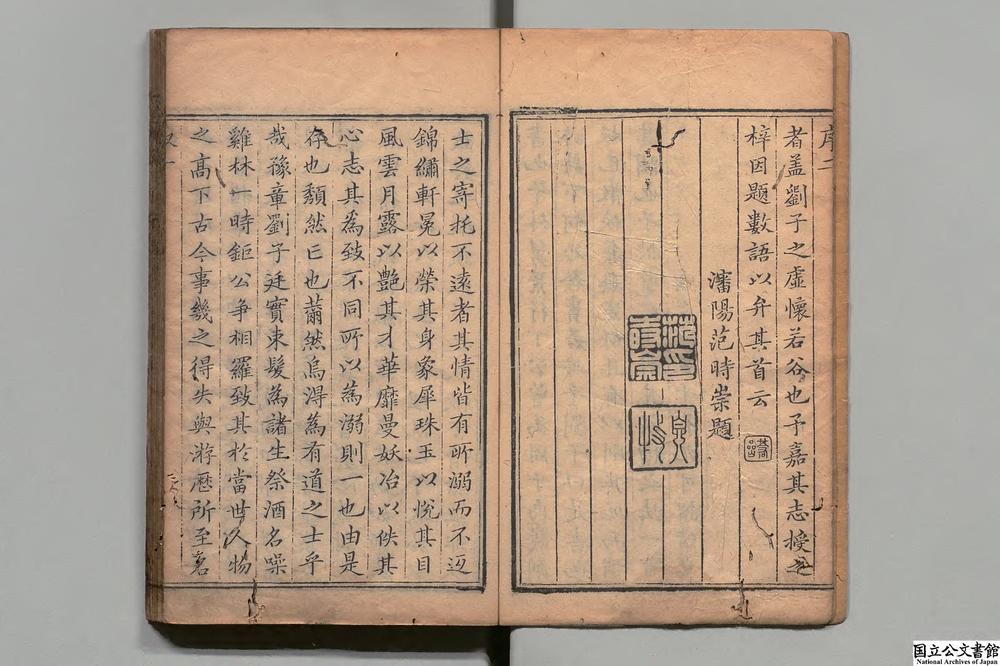 序二
者盖劉子之虛懷若谷也予嘉其志授之
梓因題數語以弁其首云
瀋陽范時崇題
范印時崇
士之寄托不遠者其情皆有所溺而不返
錦繡軒冕以榮其身象犀珠玉以悅其目
風雲月露以艷其才華靡曼妖冶以佚其
心志其為致不同所以為溺則一也由是
存也頹然亡也薾然烏淂為有道之士乎
哉豫章劉子廷實束髮為諸生祭酒名噪
雞林一時鉅公争相羅致其於當世人物
之高下古今事幾之得失與游歷所至名
国立公文書館
National Archives of Japan